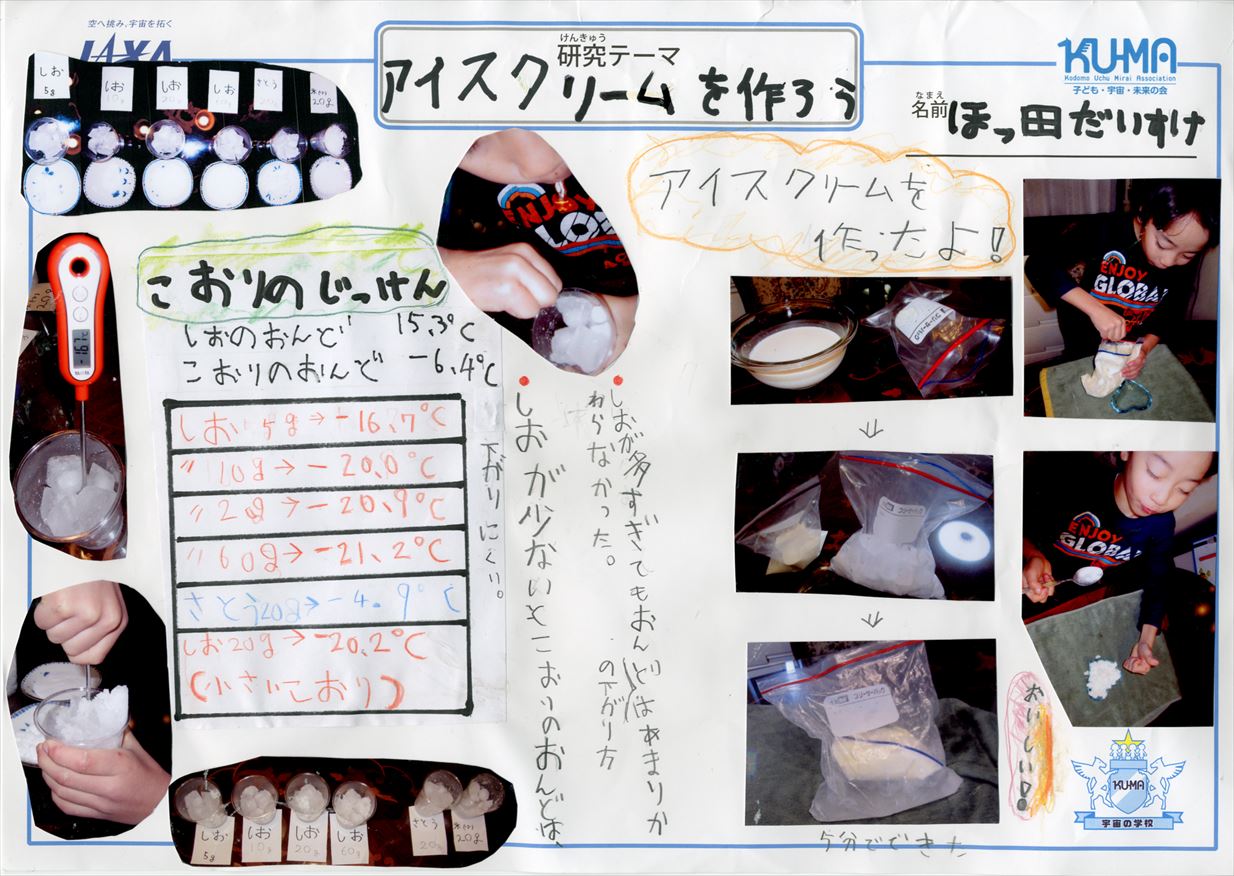 空へ挑み、宇宙を拓く
JAXA
げんきゅう
研究テーマ
アイスクリームを作ろう
KU-MA
Kodomo Uchu Mirai Association
子ども・宇宙・未来の会
なまえ
名前
ほっ田だいすけ
しお
5g
しお
10g
しお
20g
しお
60g
さとう
20g
20g
こおりのじっけん
しおのおんど 15.3℃
こおりのおんど -6.4℃
しお5g→-16.7℃
〃10g→-20.0℃
〃2g→-20.9℃
〃60g→-21.2℃
さとう20g→-4.9℃
しお20g→-20.2℃
(小さいこおり)
-16.7℃
しおが多すぎてもおんどはあまりか
わらなかった。
の下がり方
しおが少ないとこおりのおんどは、
下がりにくい。
アイスクリームを
作ったよ!
ENJOY
GLOBAL
ENJOY
GLOBAL
フリーザーバッグ
5分でできた
おいしい!
しお
5g
しお
10g
しお
20g
しお
60g
さとう
20g
20g
KU-MA
宇宙の学校